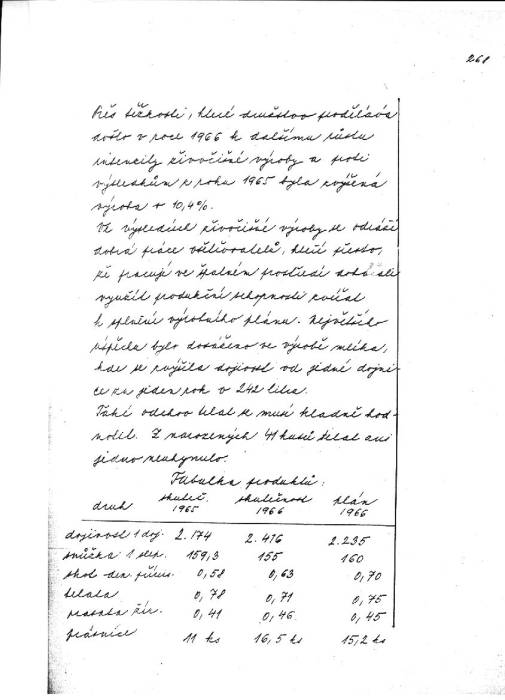 268
Přes těžkosti, které družstvo prodělává
došlo v roce 1966 k dalšímu růstu
intenzity živočišné výroby a proti
výsledkům z roku 1965 byla zvýšena
výroba o 10,4%.
Ve výsledcích živočišné výroby se odráží
dobrá práce ošetřovatelů, kteří přesto,
že pracují ve špatném prostředí dokázali
využít produkční schopnosti zvířat
k splnění výrobního plánu. Největšího
úspěchu bylo dosaženo ve výrobě mléka,
kde se zvýšila dojivost od jedné dojni-
ce za jeden rok o 242 litra.
Také odchov telat se musí kladně hod-
notit. Z narozených 41 kusů telat ani
jedno neuhynulo.
Tabulka produktů:
druh skuteč. 1965 skutečnost 1966 plán 1966
dojivost 1 doj. 2.174 2.416 2.235
snůška 1 slep. 159,3 155 160
skot den. přírus. 0,58 0,63 0,70
telata 0,78 0,71 0,75
prasata žír. 0,41 0,46 0,45
prasnice 11 ks 16,5 ks 15,2 ks